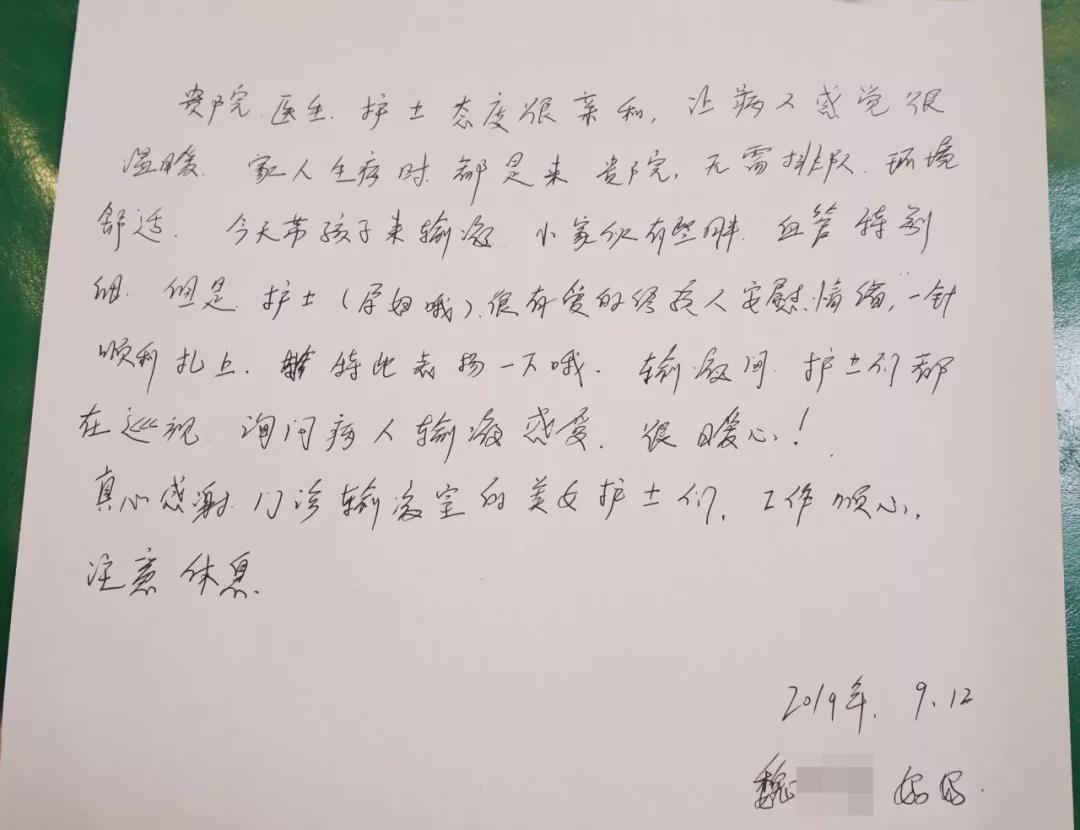 贵院医生、护士态度很亲和，让病人感觉很
温暖。家人生病时都是来贵院，无需排队。环境
舒适。今天带孩子来输液。小家伙有些胖，血管特别
细。但是，护士（孕妇哦）很有爱的给病人安慰情绪，一针
顺利扎上。特此表扬一下哦。输液间，护士们都
在巡视，询问病人输液感受。很暖心！
真心感谢门诊输液室的美女护士们，工作顺心，
注意休息。
2019年.9.12
魏 妈妈.